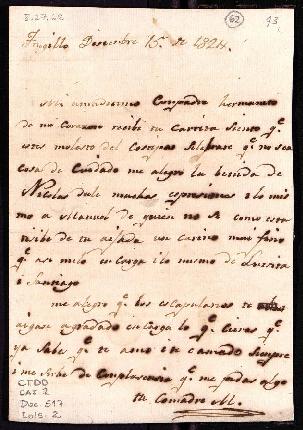 I-27,22
62
93
Trugillo Disiembre 15. de 1824.
Mi amadisimo Compadre hermanito
de mi Corazon recibi tu Cartita siento q.e
estes molesto del selebrare q.e no sea
cosa de Cuidado me alegro la benida de
Nicolas dale muchas espresiones i lo mis
mo a Manuel de quien no se como esta
resibe de tu aijada un cariño mui fino
q.e asi me lo encarga i lo mismo de Lusinia
i Santiago
me alegro q.e los escapularios te
aigan agradado encarga lo q.e cieras q.e
ya sabes q.e te amo i te e amado siempre
i me sirbe de Complasencia q.e me pidas algo
tu Comadre M.
CTDO
CAJ. 2
Doc. 517
Fols. 2